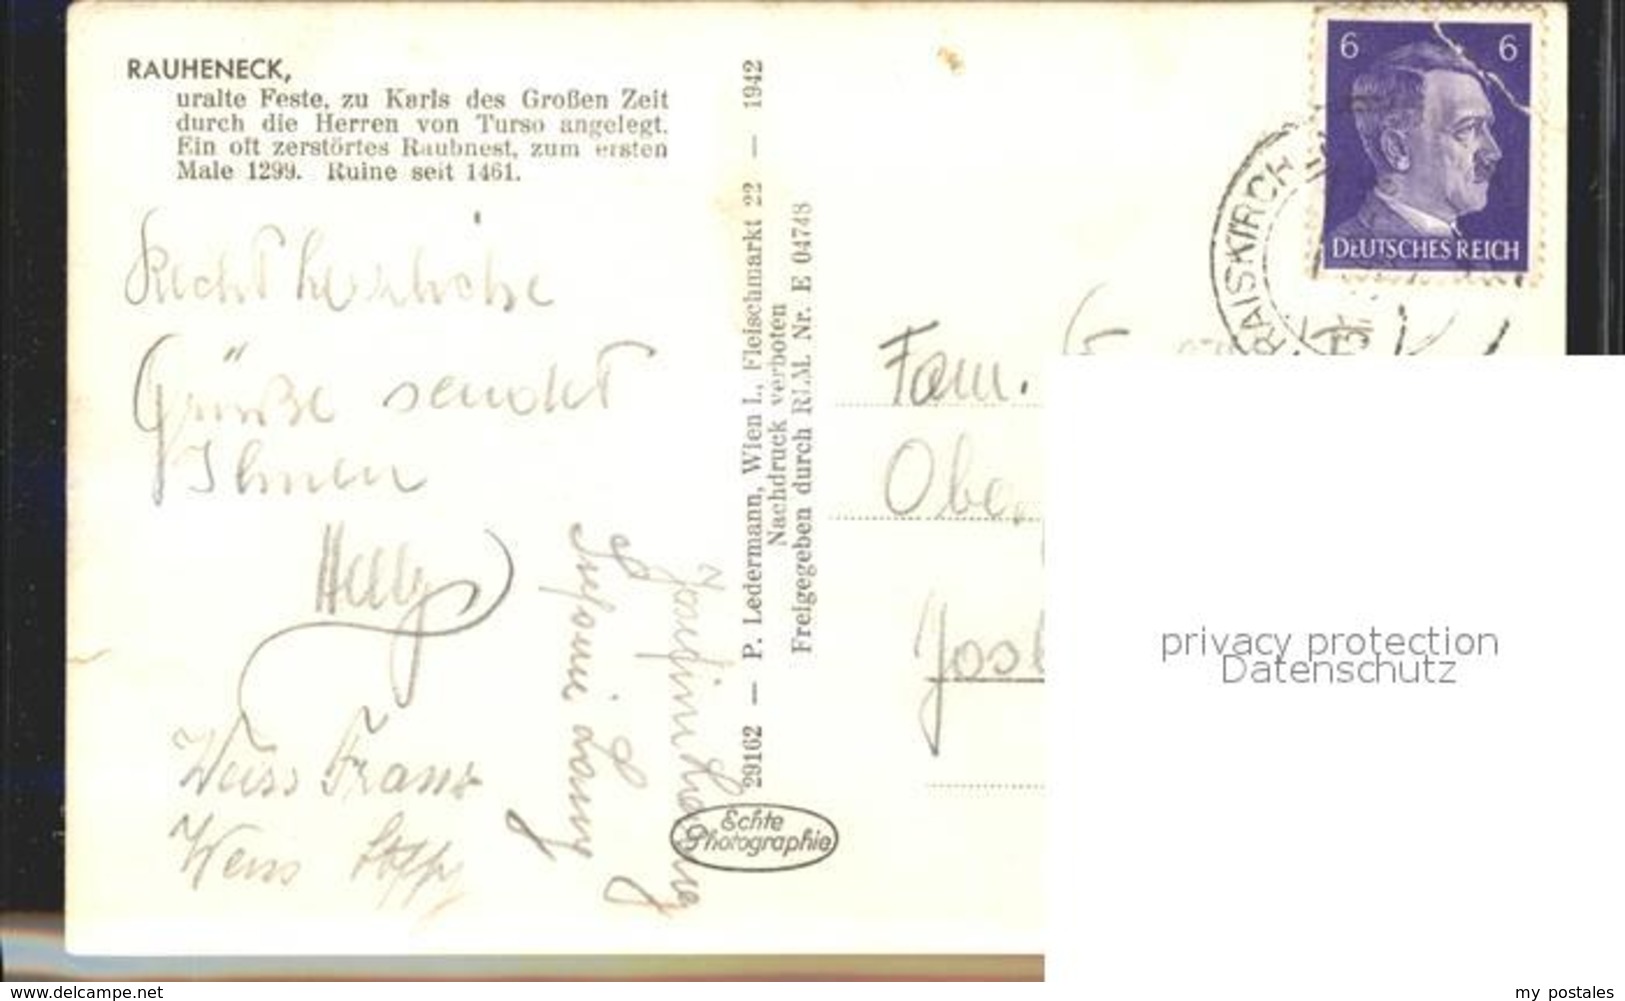 RAUHENECK,
uralte Feste, zu Karls des Großen Zeit
durch die Herren von Turso angelegt.
Ein oft zerstörtes Raubnest, zum ersten
Male 1299. Ruine seit 1461.
Recht herzliche
Grüße sendet
Ihnen
Helly
Weiss Franz
Weiss
Josefine
29162 — P. Ledermann, Wien I., Fleischmarkt 22 — 1942
Nachdruck verboten
Freigegeben durch RLM. Nr. E 04748
Echte
Photographie
6 6
DEUTSCHES REICH
RAISKIRCH
Fam.
Obe
Josl
privacy protection
Datenschutz
www.delcampe.net
my_postales